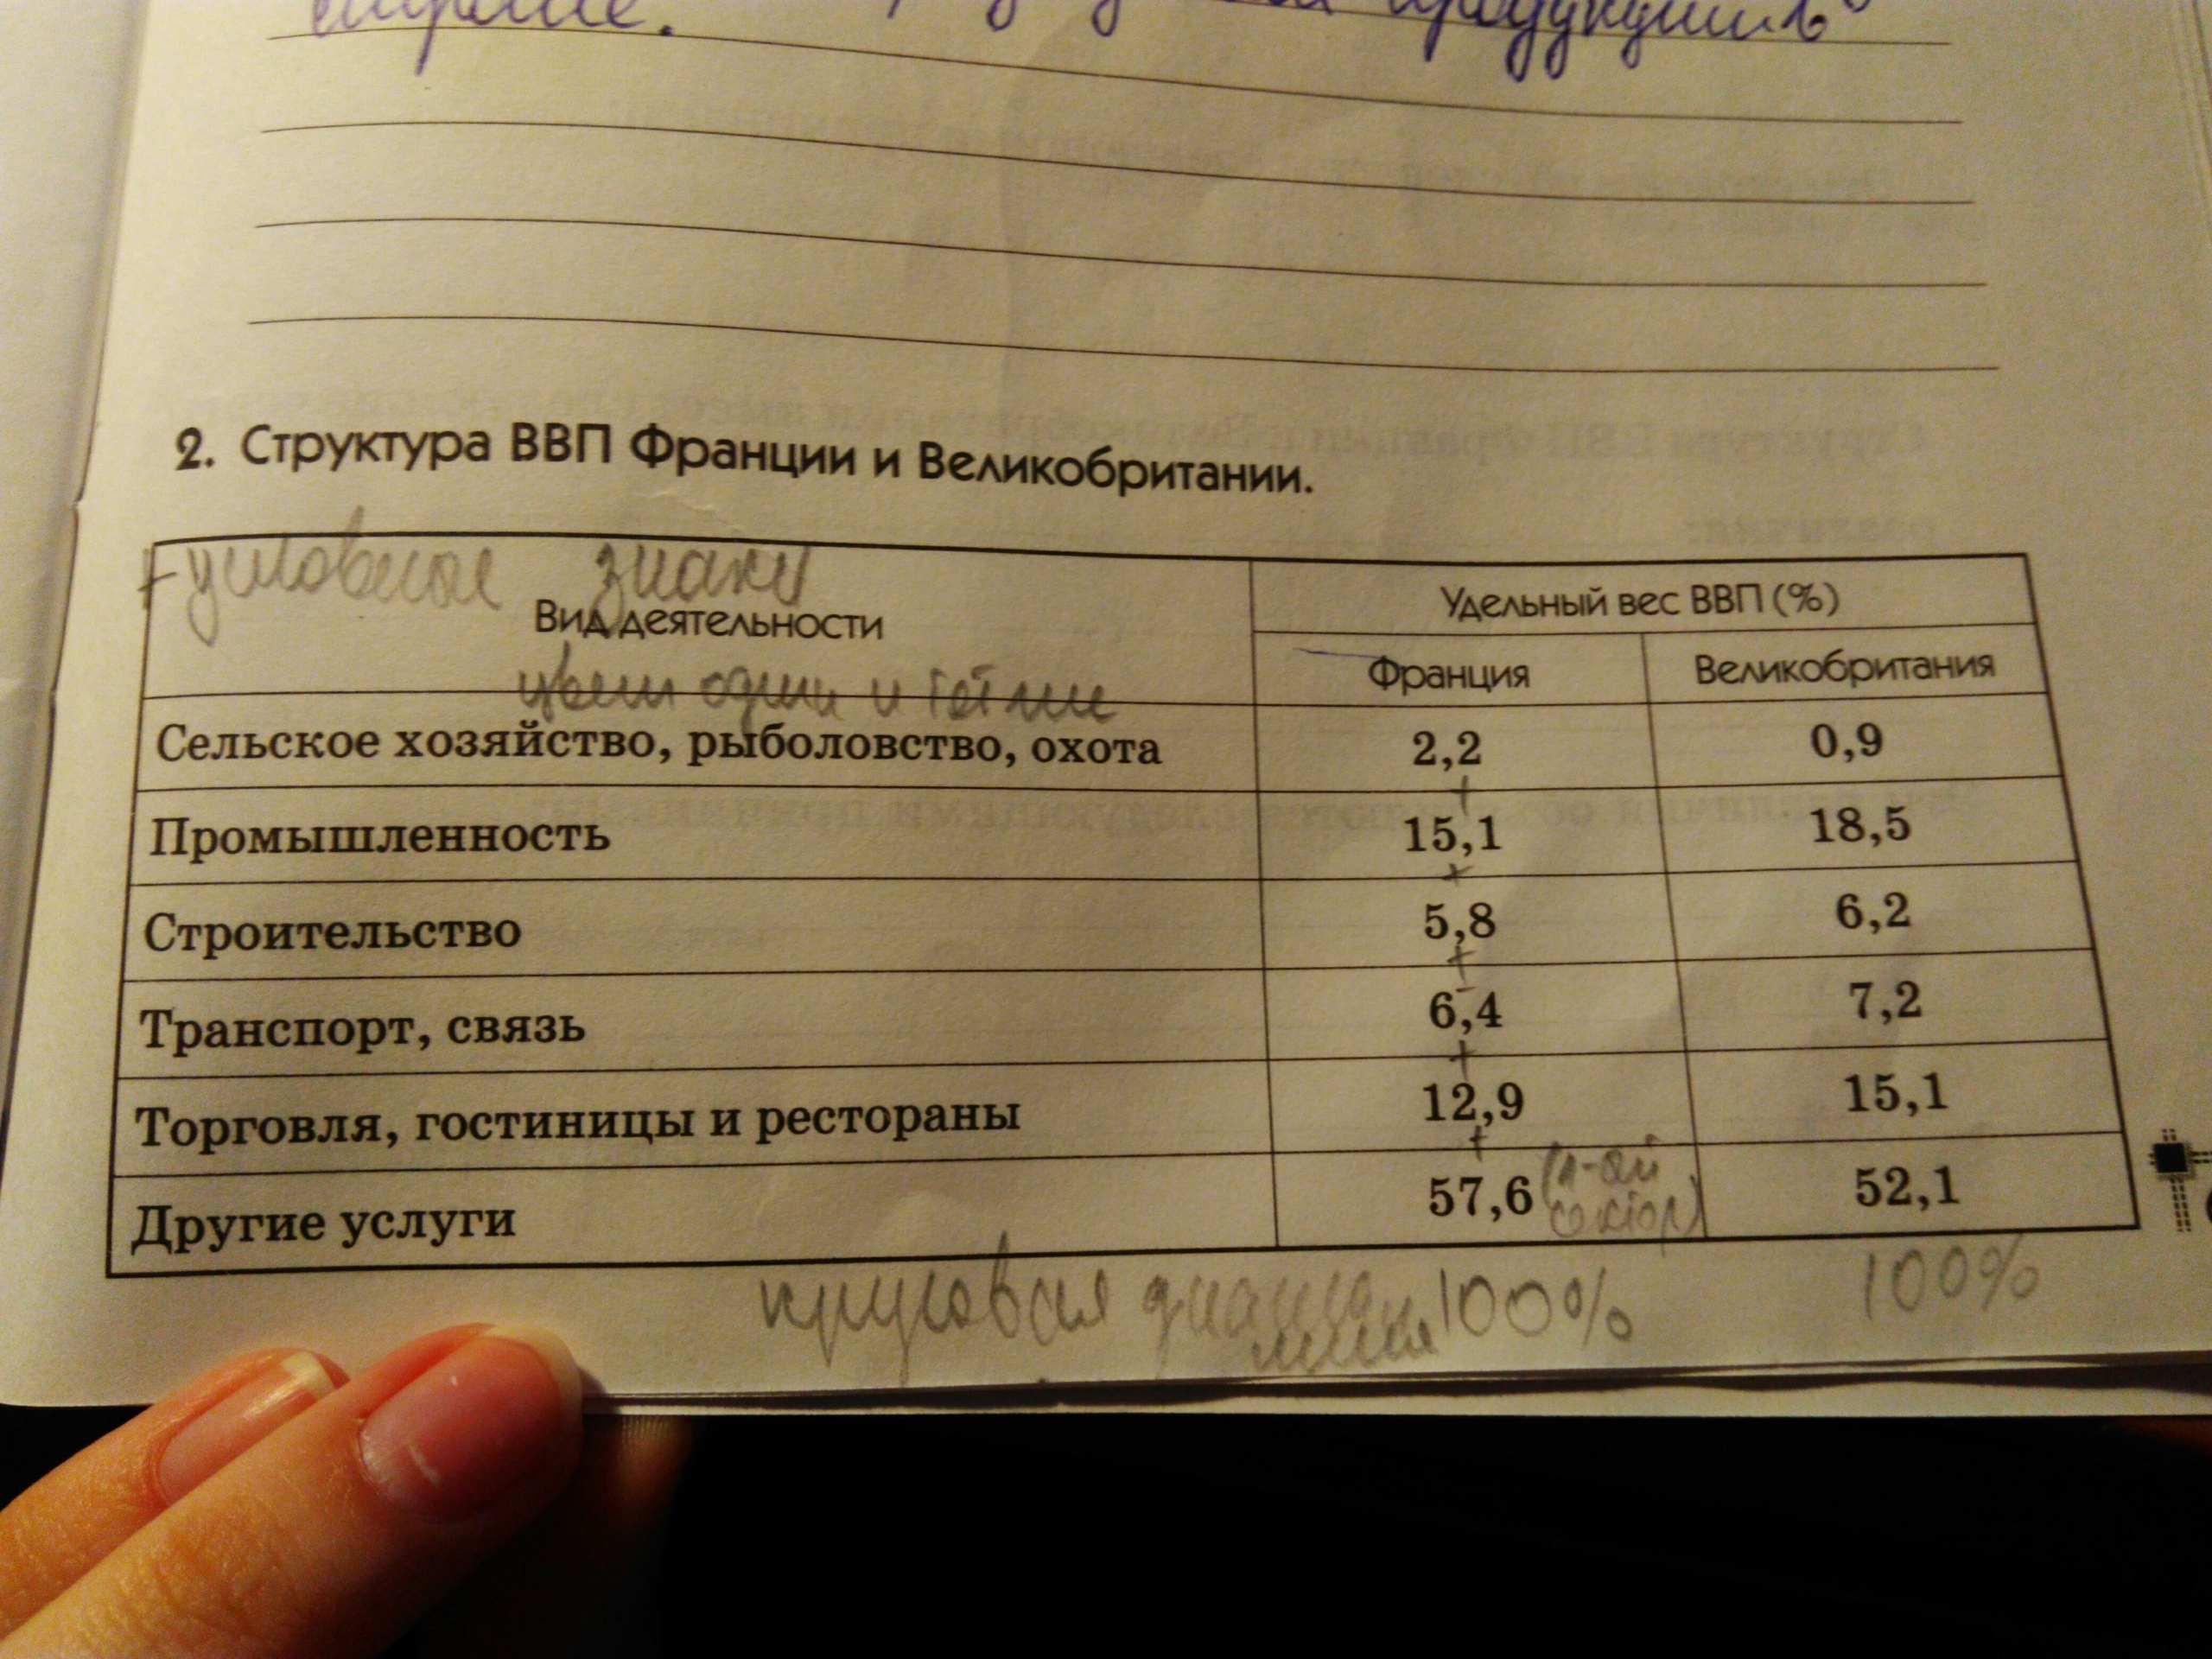 2. Структура ВВП Франции и Великобритании.
+ условные знаки
Вид деятельности
Удельный вес ВВП (%)
Франция Великобритания
цвета одни и те же
Сельское хозяйство, рыболовство, охота 2,2 0,9
+
Промышленность 15,1 18,5
+
Строительство 5,8 6,2
+
Транспорт, связь 6,4 7,2
+
Торговля, гостиницы и рестораны 12,9 15,1
+
Другие услуги 57,6 52,1
сектор)
круговая диаграмма 100% 100%